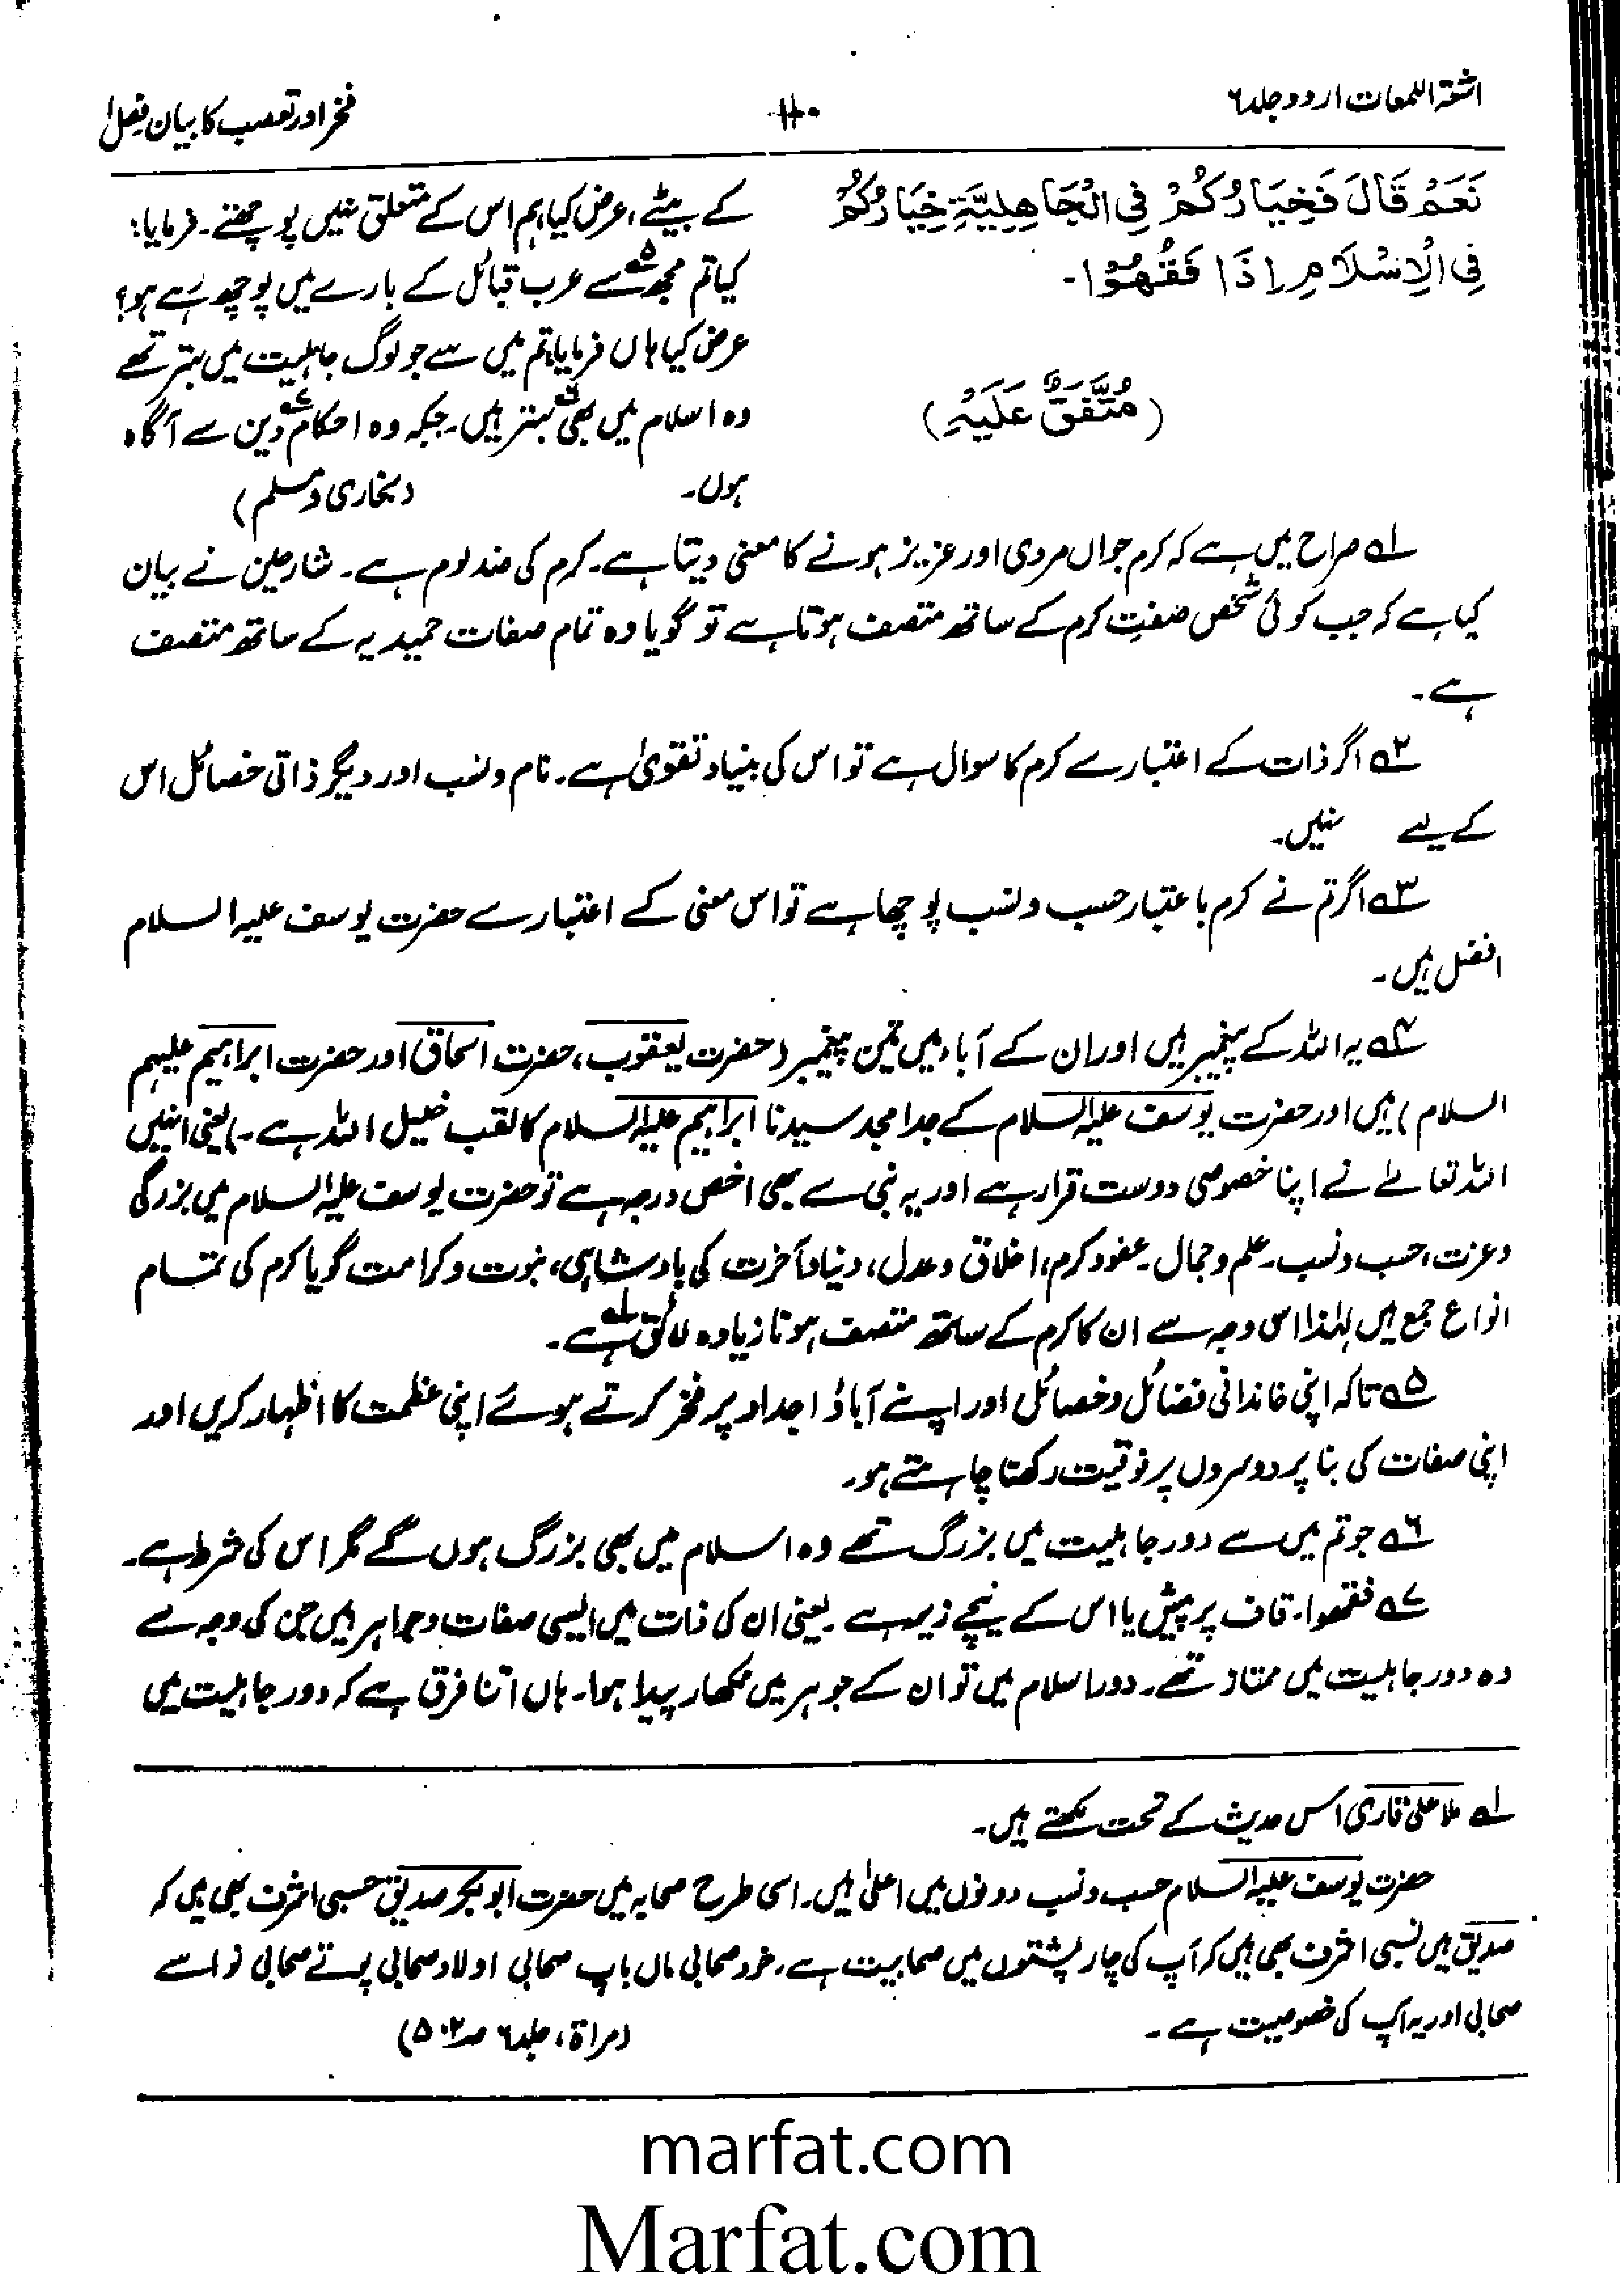 اشعۃ اللمعات اردو جلد ۶
۱۱۰
فخر اور تعصب کا بیان فصل ۱
نَعَمْ قَالَ فَخِيَارُكُمْ فِي الْجَاهِلِيَّةِ خِيَارُكُمْ
فِي الْاِسْلَامِ اِذَا فَقُهُوْا۔
(مُتَّفَقٌ عَلَيْهِ)
کے بیٹے، عرض کیا ہم اس کے متعلق نہیں پوچھتے۔ فرمایا:
کیا تم مجھ ۵؎ سے عرب قبائل کے بارے میں پوچھ رہے ہو؟
عرض کیا ہاں فرمایا تم میں سے جو لوگ جاہلیت میں بہتر تھے
وہ اسلام میں بھی ۶؎ بہتر ہیں۔ جبکہ وہ احکام ۷؎ دین سے آگاہ
ہوں۔ (بخاری و مسلم)
۱؎ صراح میں ہے کہ کرم جواں مردی اور عزیز ہونے کا معنی دیتا ہے۔ کرم کی ضد لوم ہے۔ شارحین نے بیان
کیا ہے کہ جب کوئی شخص صفتِ کرم کے ساتھ متصف ہوتا ہے تو گویا وہ تمام صفات حمیدیہ کے ساتھ متصف
ہے۔
۲؎ اگر ذات کے اعتبار سے کرم کا سوال ہے تو اس کی بنیاد تقویٰ ہے۔ نام و نسب اور دیگر ذاتی خصائل اس
کے لیے نہیں۔
۳؎ اگر تم نے کرم باعتبار حسب و نسب پوچھا ہے تو اس معنی کے اعتبار سے حضرت یوسف علیہ السلام
افضل ہیں۔
۴؎ یہ اللہ کے پیغمبر ہیں اور ان کے آباء میں تین پیغمبر (حضرت یعقوب، حضرت اسحاق اور حضرت ابراہیم علیہم
السلام) ہیں اور حضرت یوسف علیہ السلام کے جد امجد سیدنا ابراہیم علیہ السلام کا لقب خلیل اللہ ہے۔ (یعنی انہیں
اللہ تعالےٰ نے اپنا خصوصی دوست قرار ہے اور یہ نبی سے بھی اخص درجہ ہے تو حضرت یوسف علیہ السلام میں بزرگی
و عزت، حسب و نسب۔ علم و جمال۔ عفو و کرم، اخلاق و عدل، دنیا و آخرت کی بادشاہی، نبوت و کرامت گویا کرم کی تمام
انواع جمع ہیں لہٰذا اس وجہ سے ان کا کرم کے ساتھ متصف ہونا زیادہ لائق ۱؎ ہے۔
۵؎ تاکہ اپنی خاندانی فضائل و خصائل اور اپنے آباؤ اجداد پر فخر کرتے ہوئے اپنی عظمت کا اظہار کریں اور
اپنی صفات کی بنا پر دوسروں پر فوقیت رکھنا چاہتے ہو۔
۶؎ جو تم میں سے دور جاہلیت میں بزرگ تھے وہ اسلام میں بھی بزرگ ہوں گے مگر اس کی شرط ہے۔
۷؎ فقھوا۔ قاف پر پیش یا اس کے نیچے زیر ہے۔ یعنی ان کی ذات میں ایسی صفات و جواہر ہیں جن کی وجہ سے
وہ دور جاہلیت میں ممتاز تھے۔ دورِ اسلام میں تو ان کے جوہر میں نکھار پیدا ہوا۔ ہاں اتنا فرق ہے کہ دور جاہلیت میں
۱؎ ملا علی قاری اس حدیث کے تحت لکھتے ہیں۔
حضرت یوسف علیہ السلام حسب و نسب دونوں میں اعلیٰ ہیں۔ اسی طرح صحابہ میں حضرت ابوبکر صدیق حسبی اشرف بھی ہیں کہ
صدیق ہیں نسبی اشرف بھی ہیں کہ آپ کی چار پشتوں میں صحابیت ہے، خود صحابی ماں باپ صحابی اولاد صحابی پوتے صحابی نواسے
صحابی اور یہ آپ کی خصوصیت ہے۔ (مراۃ، جلد ۶ صـ ۵۰۲)
marfat.com
Marfat.com